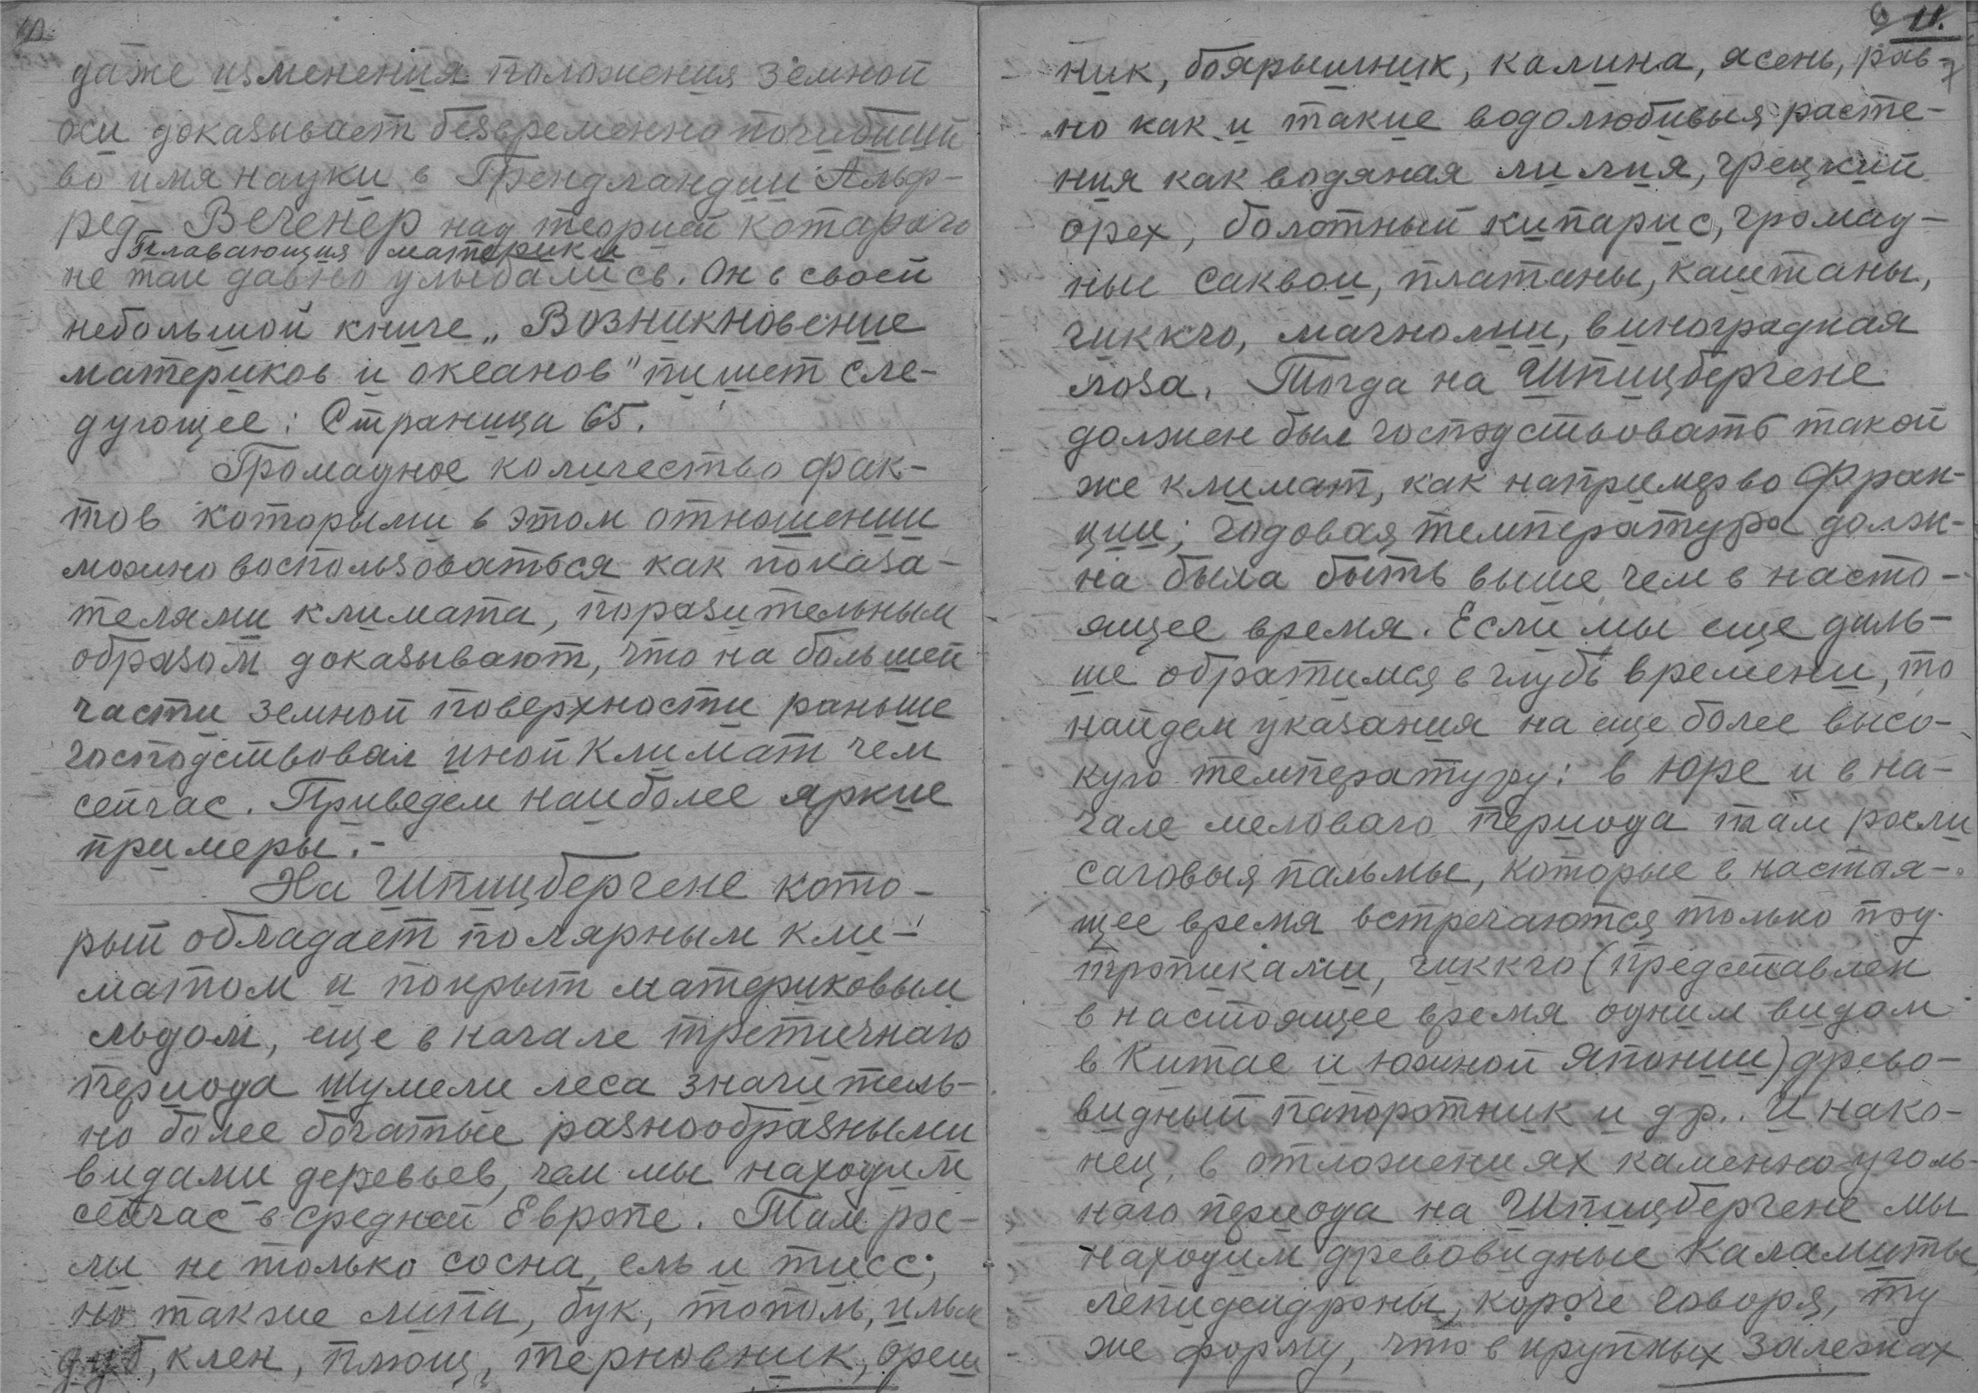 10.
даже изменения положения земной
оси доказывает безвременно погибший
во имя науки в Грендландии Альф-
ред Вегенер над теорией котораго
Плавающия материки
не так давно улыбались. Он в своей
небольшой книге „Возникновение
материков и океанов" пишет сле-
дующее: Страница 65.
Громадное количество фак-
тов которыми в этом отношении
можно воспользоваться как показа-
телями климата, поразительным
образом доказывают, что на большей
части земной поверхности раньше
господствовал иной климат чем
сейчас. Приведем наиболее яркие
примеры.-
На Шпицбергене кото-
рый обладает полярным кли-
матом и покрыт материковым
льдом, еще в начале третичнаго
периода шумели леса значитель-
но более богатые разнообразными
видами деревьев, чем мы находим
сейчас в средней Европе. Там рос-
ли не только сосна, ель и тисс,
но также липа, бук, тополь, ильм
дуб, клен, плющ, терновник, ореш
11.
ник, боярышник, калина, ясень, рав-
но как и такие водолюбивыя расте-
ния как водяная лилия, грецкий
орех, болотный кипарис, громад-
ные саквои, платаны, каштаны,
гиккго, магнолии, виноградная
лоза. Тогда на Шпицбергене
должен был господствовать такой
же климат, как например во Фран-
ции; годовая температура долж-
на была быть выше чем в насто-
ящее время. Если мы еще даль-
ше обратимся в глубь времени, то
найдем указания на еще более высо-
кую температуру: в юре и в на-
чале меловаго периода там росли
саговыя пальмы, которые в настоя-
щее время встречаются только под
тропиками, гиккго (представлен
в настоящее время одним видом
в Китае и южной Японии) древо-
видный папоротник и др.. И нако-
нец, в отложениях каменноуголь-
наго периода на Шпицбергене мы
находим древовидные каламиты,
лепидендроны, короче говоря, ту
же форму, что в крупных залежах